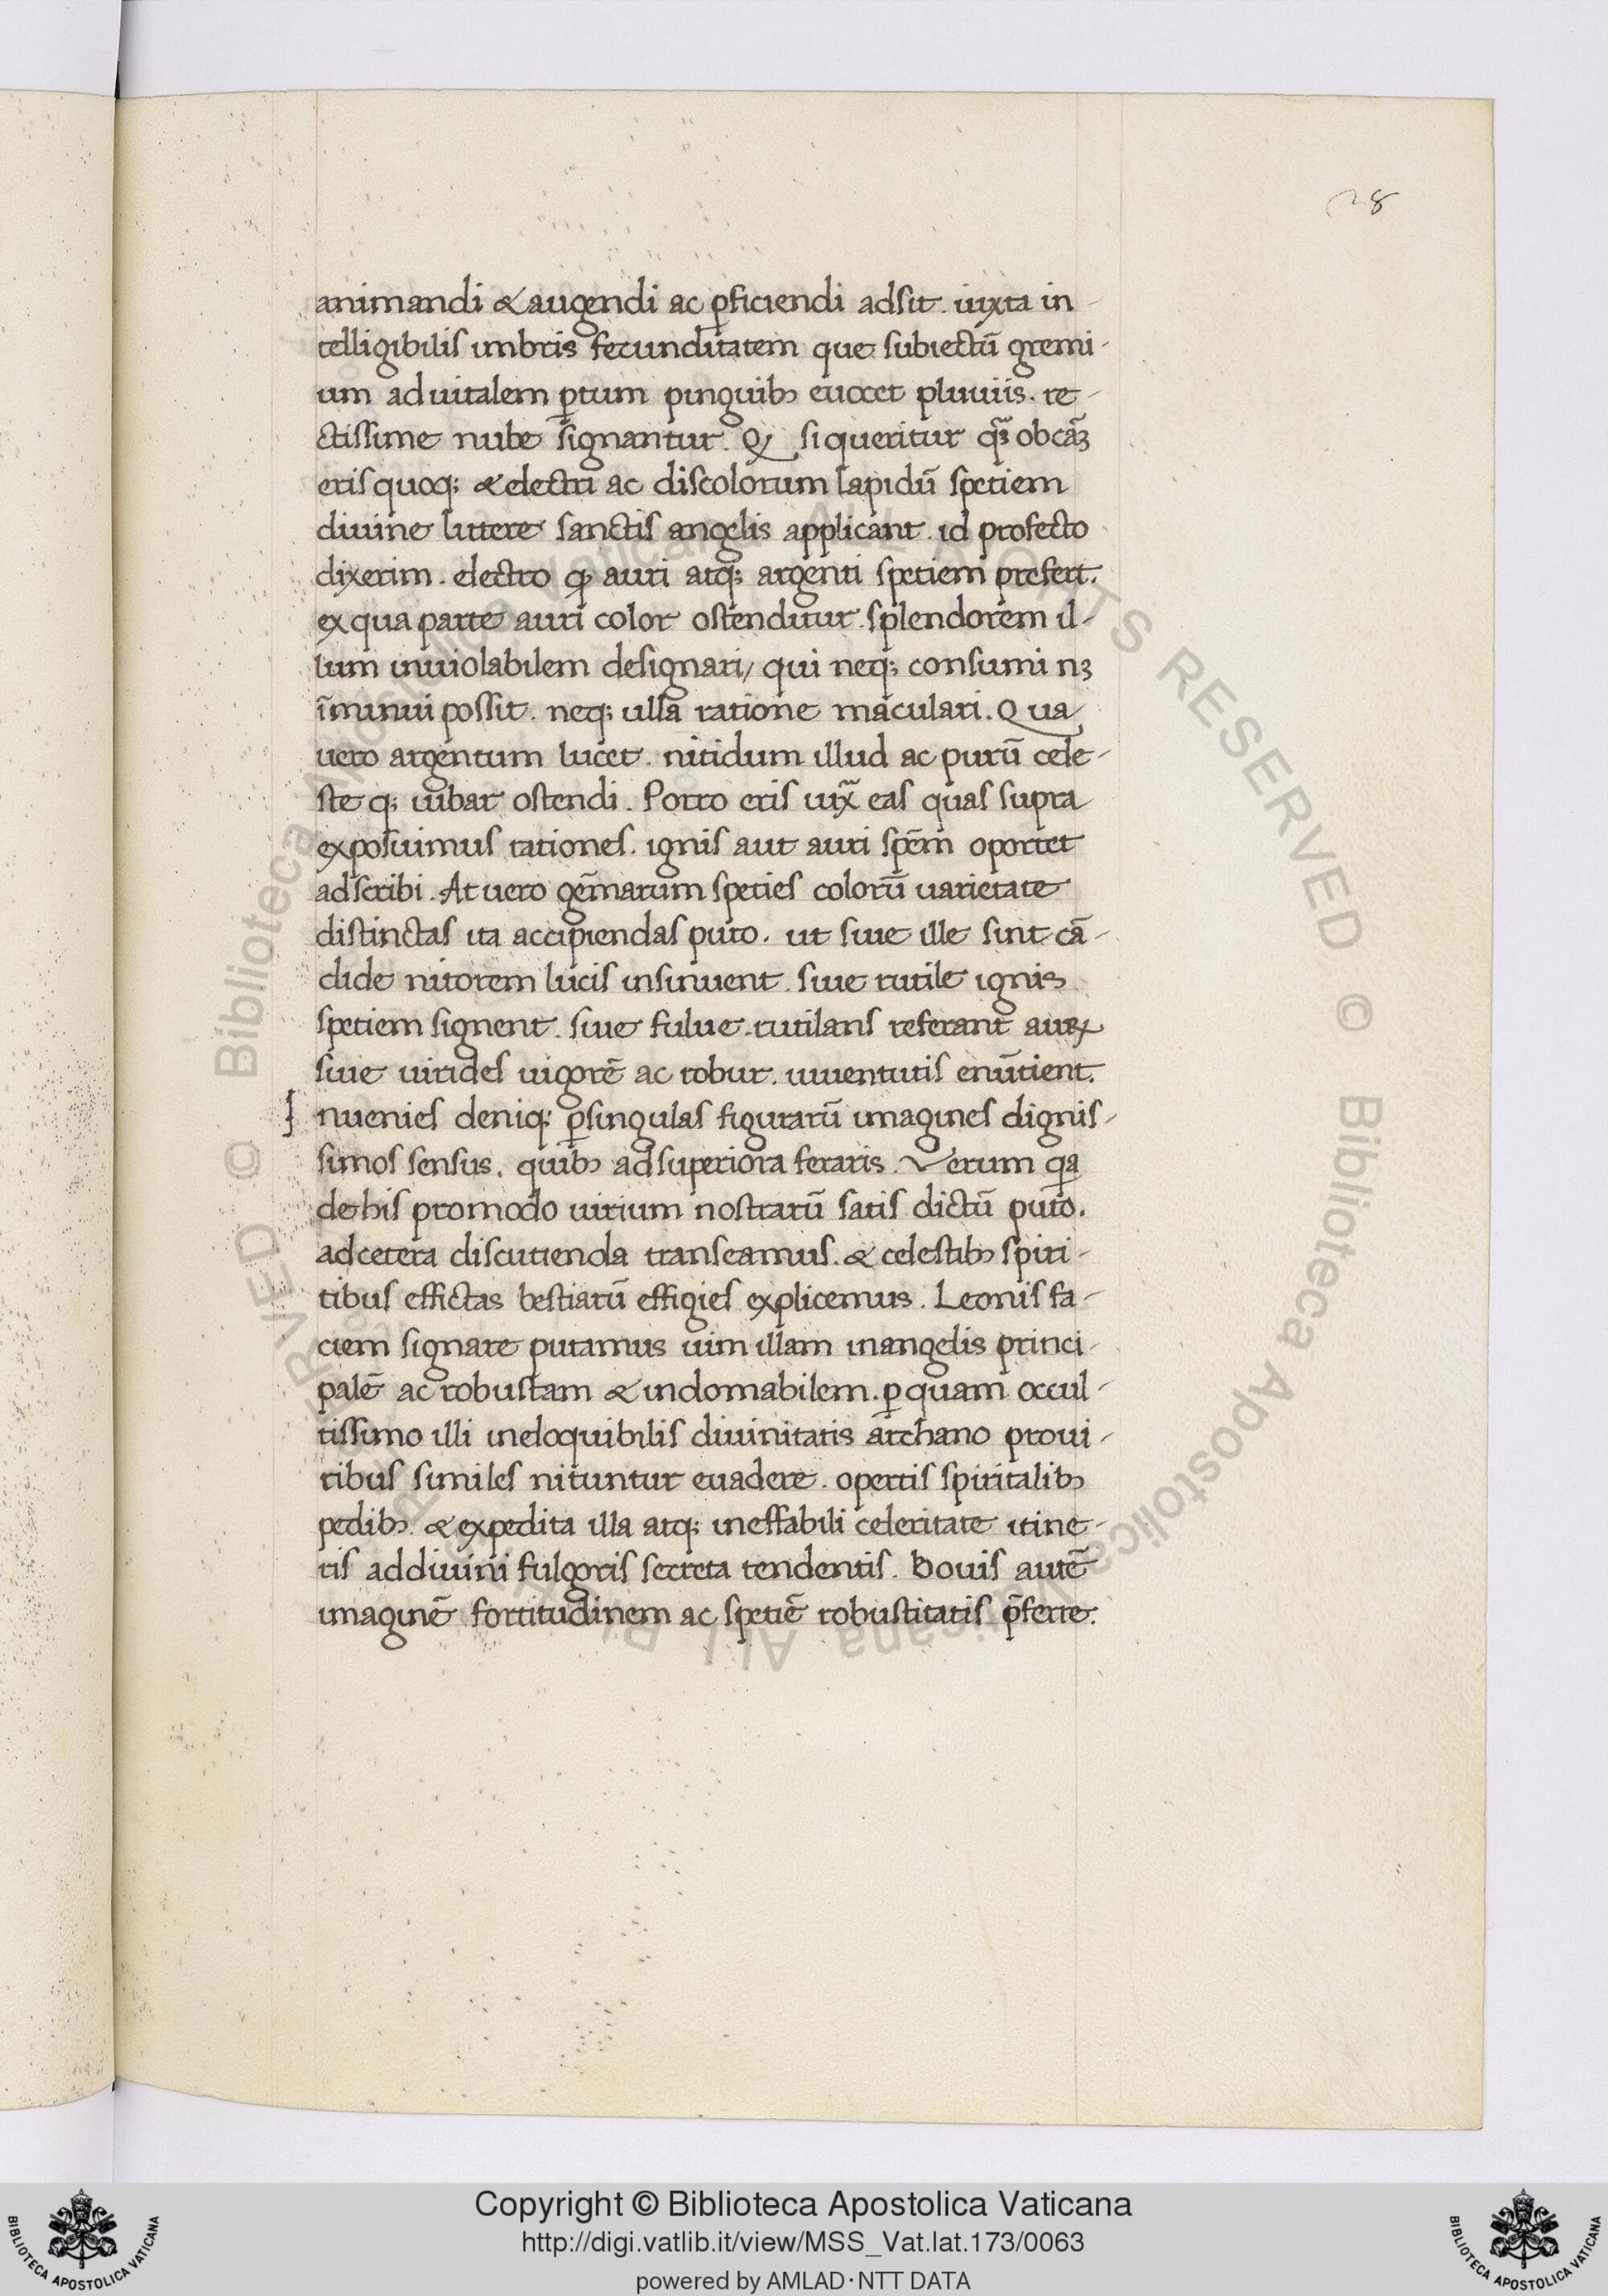 28
animandi & augendi ac ꝑficiendi adsit. iuxta in-
telligibilis imbris fecunditatem que subiectū gremi-
um ad uitalem ꝑtum pinguibꝫ euocet pluuiis. re-
ctissime nube signantur. Qꝫ si queritur obcāꝫ
eris quoqꝫ & electri ac discolorum lapidū spetiem
diuine littere sanctis angelis applicant. id profecto
dixerim. electro ꝙ auri atqꝫ argenti spetiem prefert.
ex qua parte auri color ostenditur. splendorem il-
lum inuiolabilem designari, qui neqꝫ consumi nꝫ
īminui possit. neqꝫ ulla ratione maculari. Qua
uero argentum lucet. nitidum illud ac purū cele-
ste qꝫ iubar ostendi. Porro eris iuxᷓ eas quas supra
exposuimus rationes. ignis aut auri spēm oportet
adscribi. At uero gēmarum speties colorū uarietate
distinctas ita accipiendas puto. ut siue ille sint cā-
dide nitorem lucis insinuent. siue rutile ignis
spetiem signent. siue fulue. rutilans referant auꝝ
siue uirides uigorē ac robur. iuuentutis enūtient.
I nuenies deniqꝫ ꝑ singulas figurarū imagines dignis-
simos sensus. quibꝫ ad superiora feraris. Verum qa
de his pro modo uirium nostrarū satis dictū puto.
ad cetera discutienda transeamus. & celestibꝫ spiri-
tibus effictas bestiarū effigies explicemus. Leonis fa-
ciem signare putamus uim illam in angelis princi-
palē ac robustam & indomabilem. ꝑ quam occul-
tissimo illi ineloquibilis diuinitatis archano pro ui-
ribus similes nituntur euadere. opertis spiritalibꝫ
pedibꝫ. & expedita illa atqꝫ ineffabili celeritate itine-
ris ad diuini fulgoris secreta tendentis. Bouis autē
imaginē fortitudinem ac spetiē robustitatis p̄ferre.
Copyright © Biblioteca Apostolica Vaticana
http://digi.vatlib.it/view/MSS_Vat.lat.173/0063
powered by AMLAD·NTT DATA